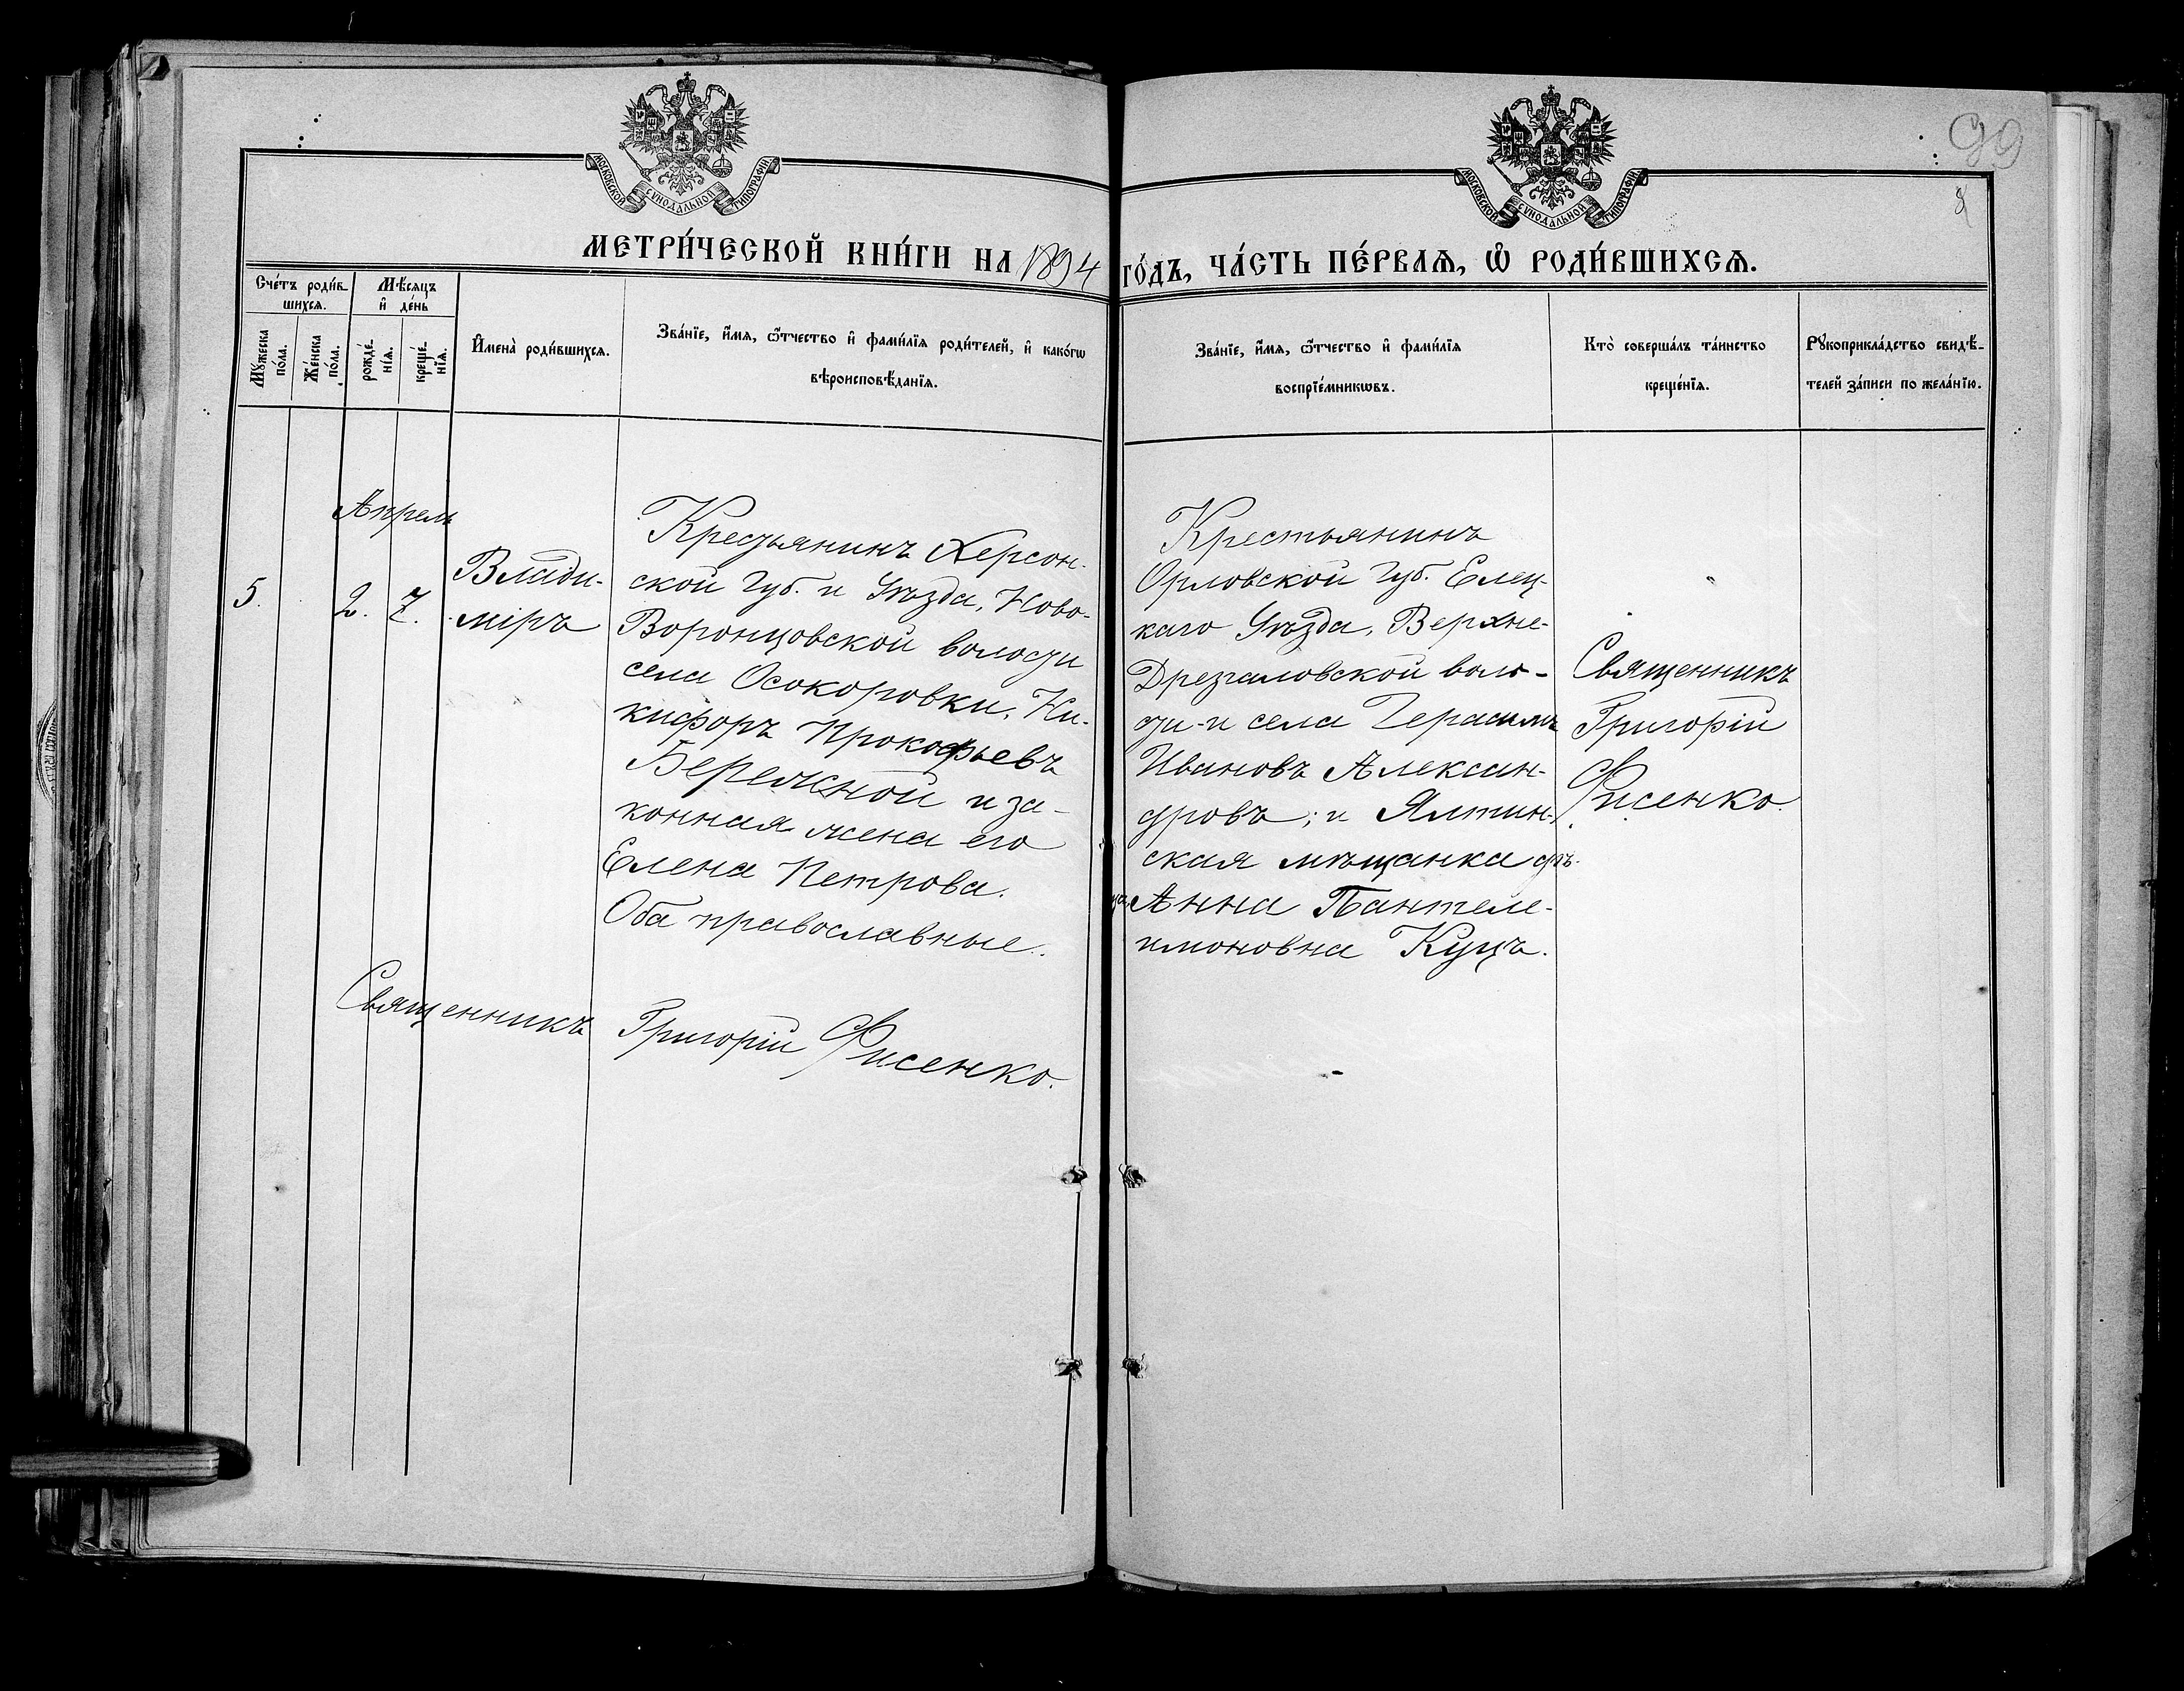 МОСКОВСКОЙ СѴНОДАЛЬНОЙ ТИПОГРАФІИ
МОСКОВСКОЙ СѴНОДАЛЬНОЙ ТИПОГРАФІИ
99
МЕТРИ́ЧЕСКОЙ КНИ́ГИ НА 1894 ГО́ДЪ, ЧА́СТЬ ПЕ́РВАѦ, Ѽ РОДИ́ВШИХСѦ.
Сче́тъ роди́в-
шихсѧ.
Мѣ́сѧцъ
и҆ де́нь
Мꙋ́жеска по́ла.
Же́нска по́ла.
рожде́-
нїѧ.
креще́-
нїѧ.
И҆мена̀ роди́вшихсѧ.
Зва́нїе, и҆́мѧ, ѻ҆́тчество и҆ фами́лїѧ роди́телей, и҆ како́гѡ
вѣроисповѣ́данїѧ.
Зва́нїе, и҆́мѧ, ѻ҆́тчество и҆ фами́лїѧ
воспрїе́мникѡвъ.
Кто̀ соверша́лъ та́инство
креще́нїѧ.
Рꙋкоприкла́дство свидѣ́-
телей за́писи по жела́нїю.
Апрель
5.
2.
7.
Влади-
міръ
Крестьянинъ Херсон-
ской Губ. и Уѣзда, Ново-
Воронцовской волости
села Осокоровки, Ни-
кифоръ Прокофьевъ
Бережной и за-
конная жена его
Елена Петрова.
Оба православные.
Крестьянинъ
Орловской Губ. Елец-
каго Уѣзда, Верхне-
Дрезгаловской воло-
сти и села Герасимъ
Ивановъ Алексан-
дровъ; и Ялтин-
ская мѣщанка дѣ-
ца Анна Пантеле-
имоновна Куцъ.
Священникъ
Григорій
Фисенко.
Священникъ Григорій Фисенко.